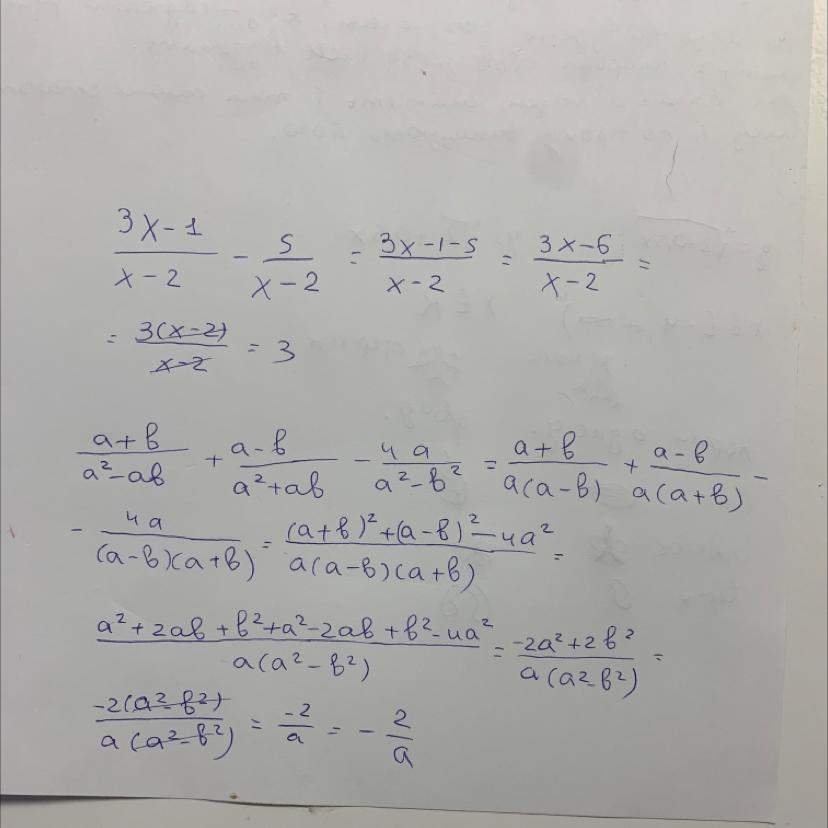 (3x-1)/(x-2) - 5/(x-2) = (3x-1-5)/(x-2) = (3x-6)/(x-2) =
= 3(x-2)/(x-2) = 3
(a+b)/(a²-ab) + (a-b)/(a²+ab) - 4a/(a²-b²) = (a+b)/(a(a-b)) + (a-b)/(a(a+b)) -
- 4a/((a-b)(a+b)) = ((a+b)²+(a-b)²-4a²)/(a(a-b)(a+b)) =
(a²+2ab+b²+a²-2ab+b²-4a²)/(a(a²-b²)) = (-2a²+2b²)/(a(a²-b²)) =
-2(a²-b²)/(a(a²-b²)) = -2/a = - 2/a